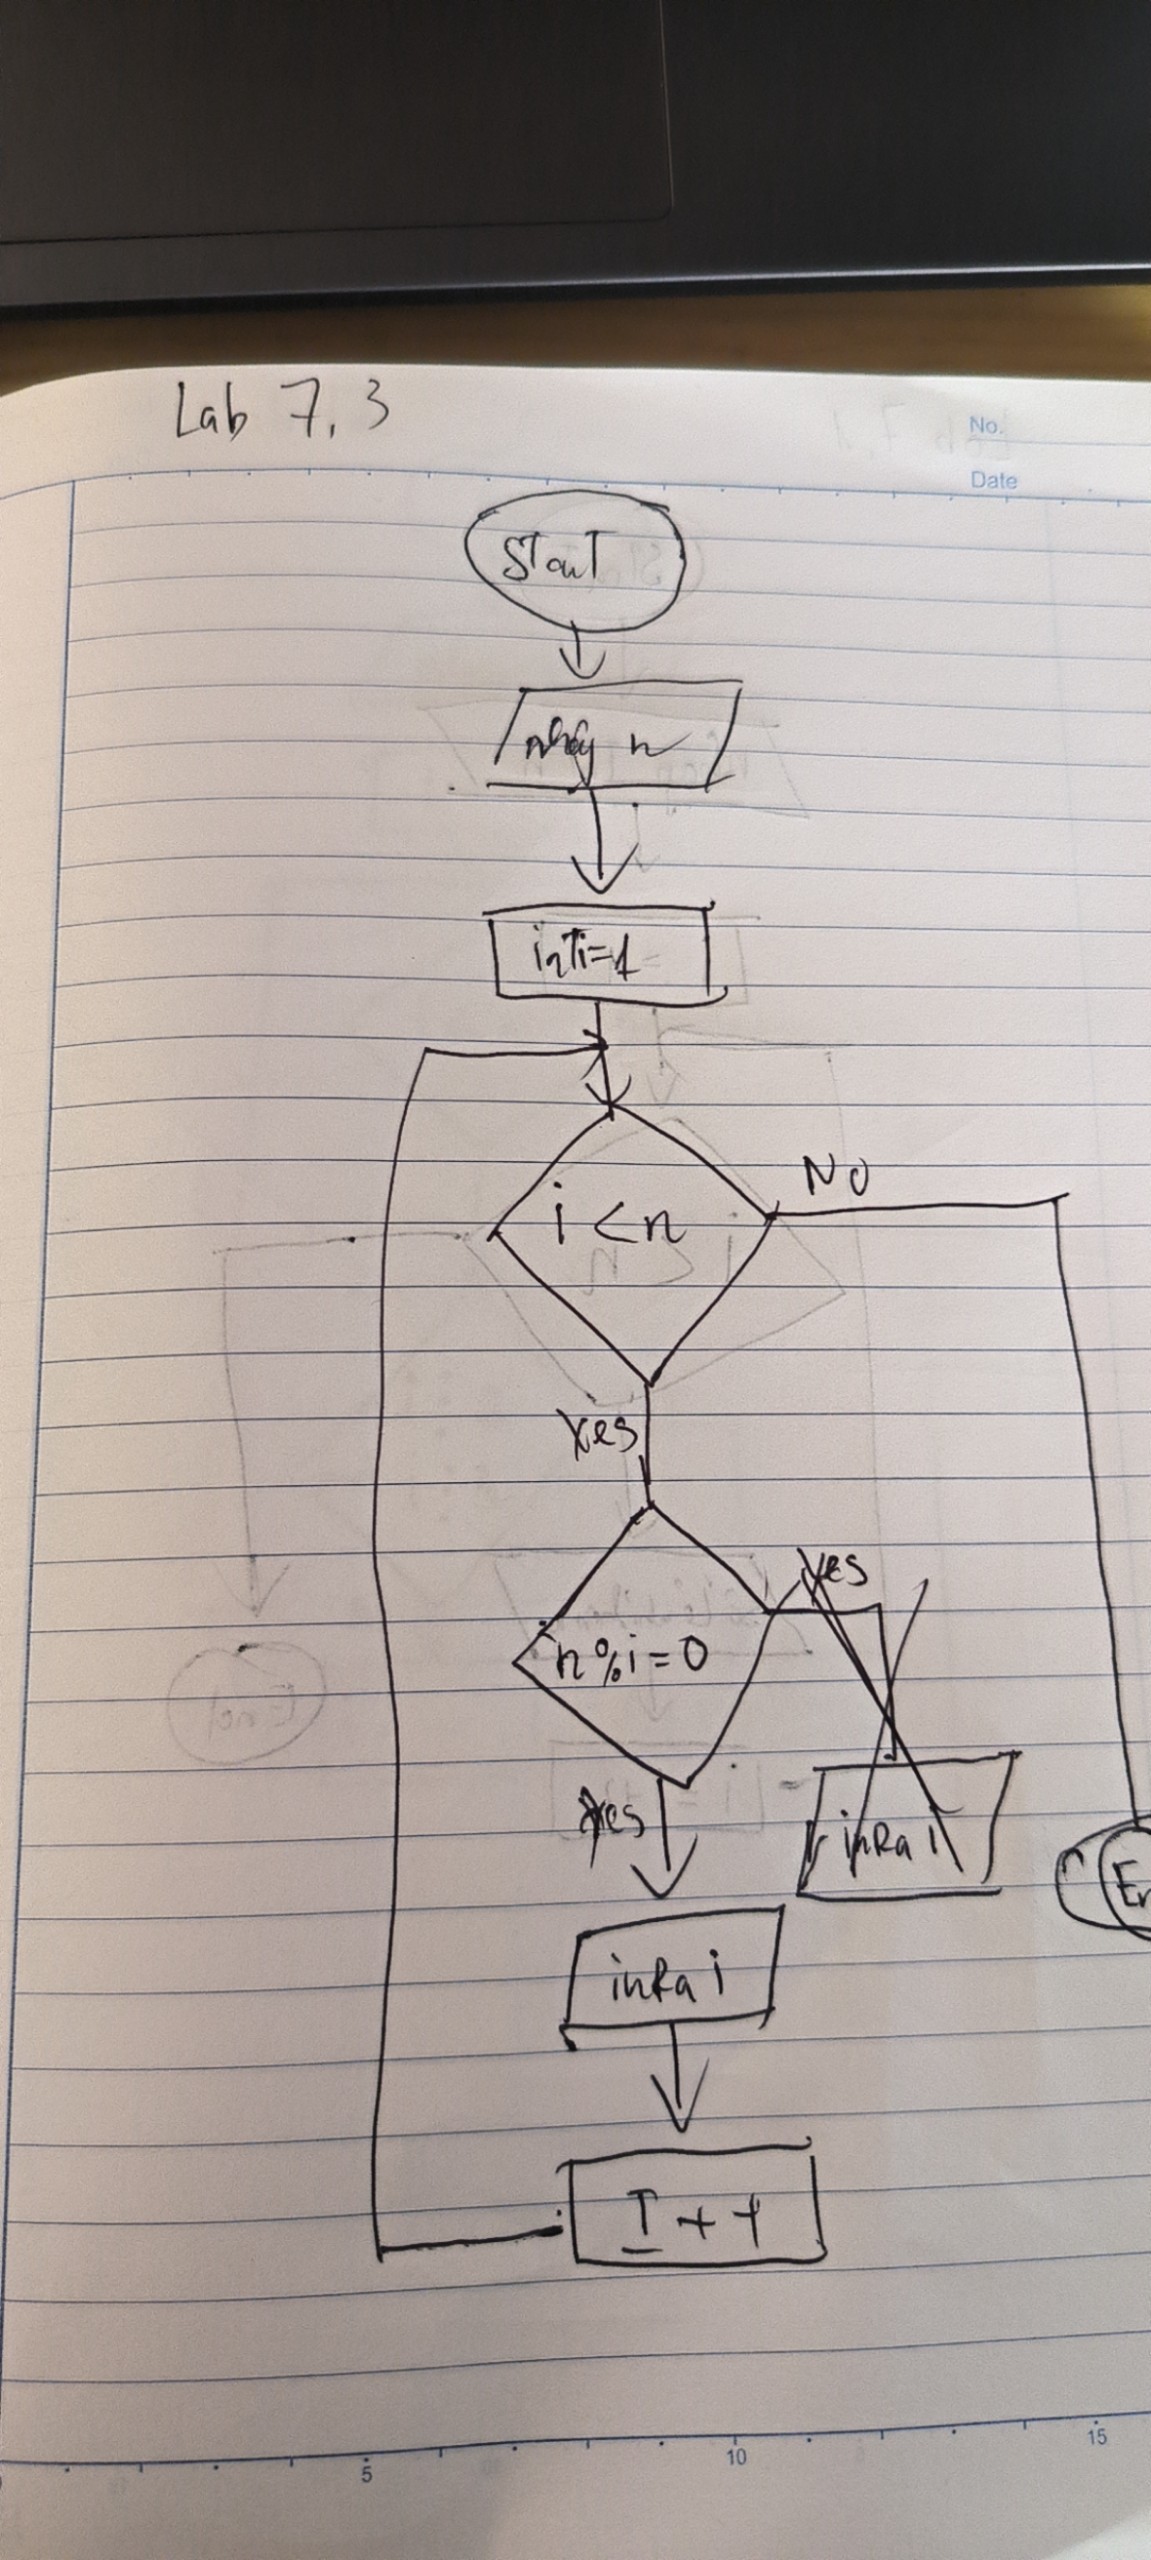 Lab 7.3
No.
Date
Start
nhập n
int i=1
i < n
No
Yes
n % i = 0
Yes
Yes
in Ra i
in Ra i
I + +
5
10
15